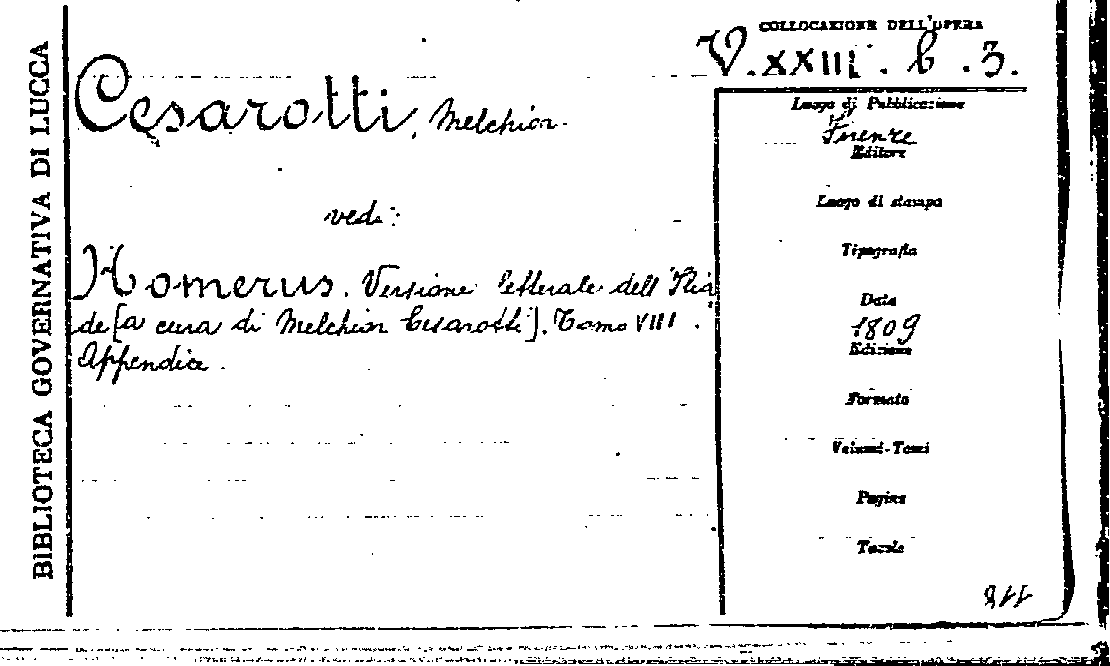 BIBLIOTECA GOVERNATIVA DI LUCCA
COLLOCAZIONE DELL'OPERA
V.XXIII.b.3.
Cesarotti, Melchior.
vedi:
Homerus. Versione letterale dell'Ilia
de [a cura di Melchior Cesarotti]. Tomo VIII.
Appendice.
Luogo di Pubblicazione
Firenze
Editore
Luogo di stampa
Tipografia
Data
1809
Edizione
Formato
Volumi-Tomi
Pagine
Tavole